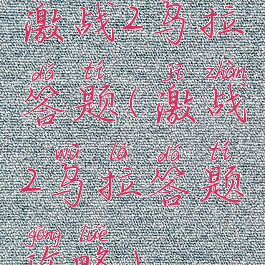 激战2乌拉
dá tí jī zhàn
答题(激战
wū lā dá tí
2乌拉答题
gōng lüè
攻略)